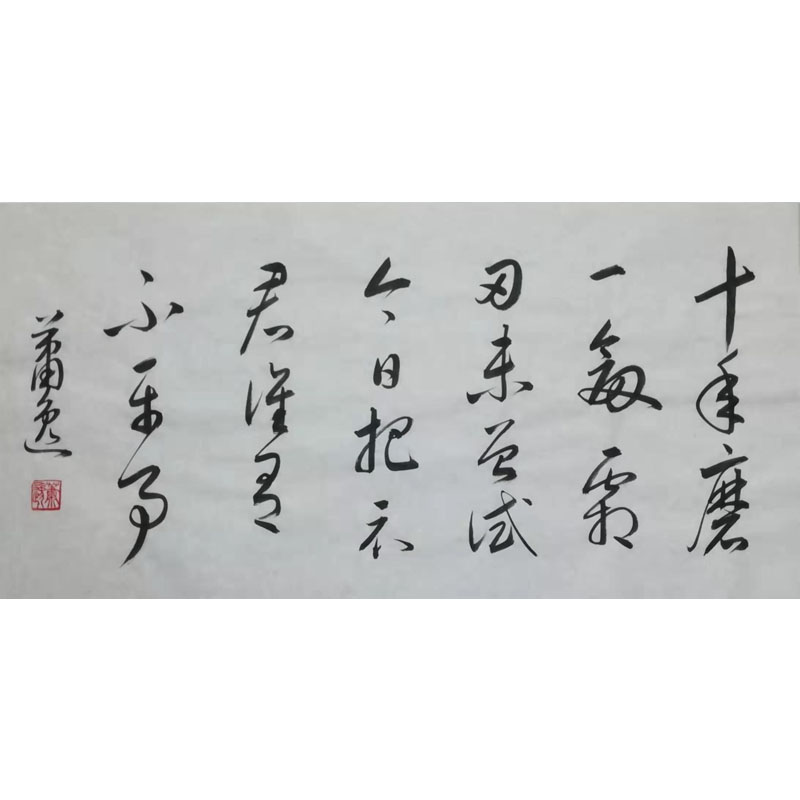 十年磨
一劍霜
刃未曾試
今日把示
君誰有
不平事
蕭逸